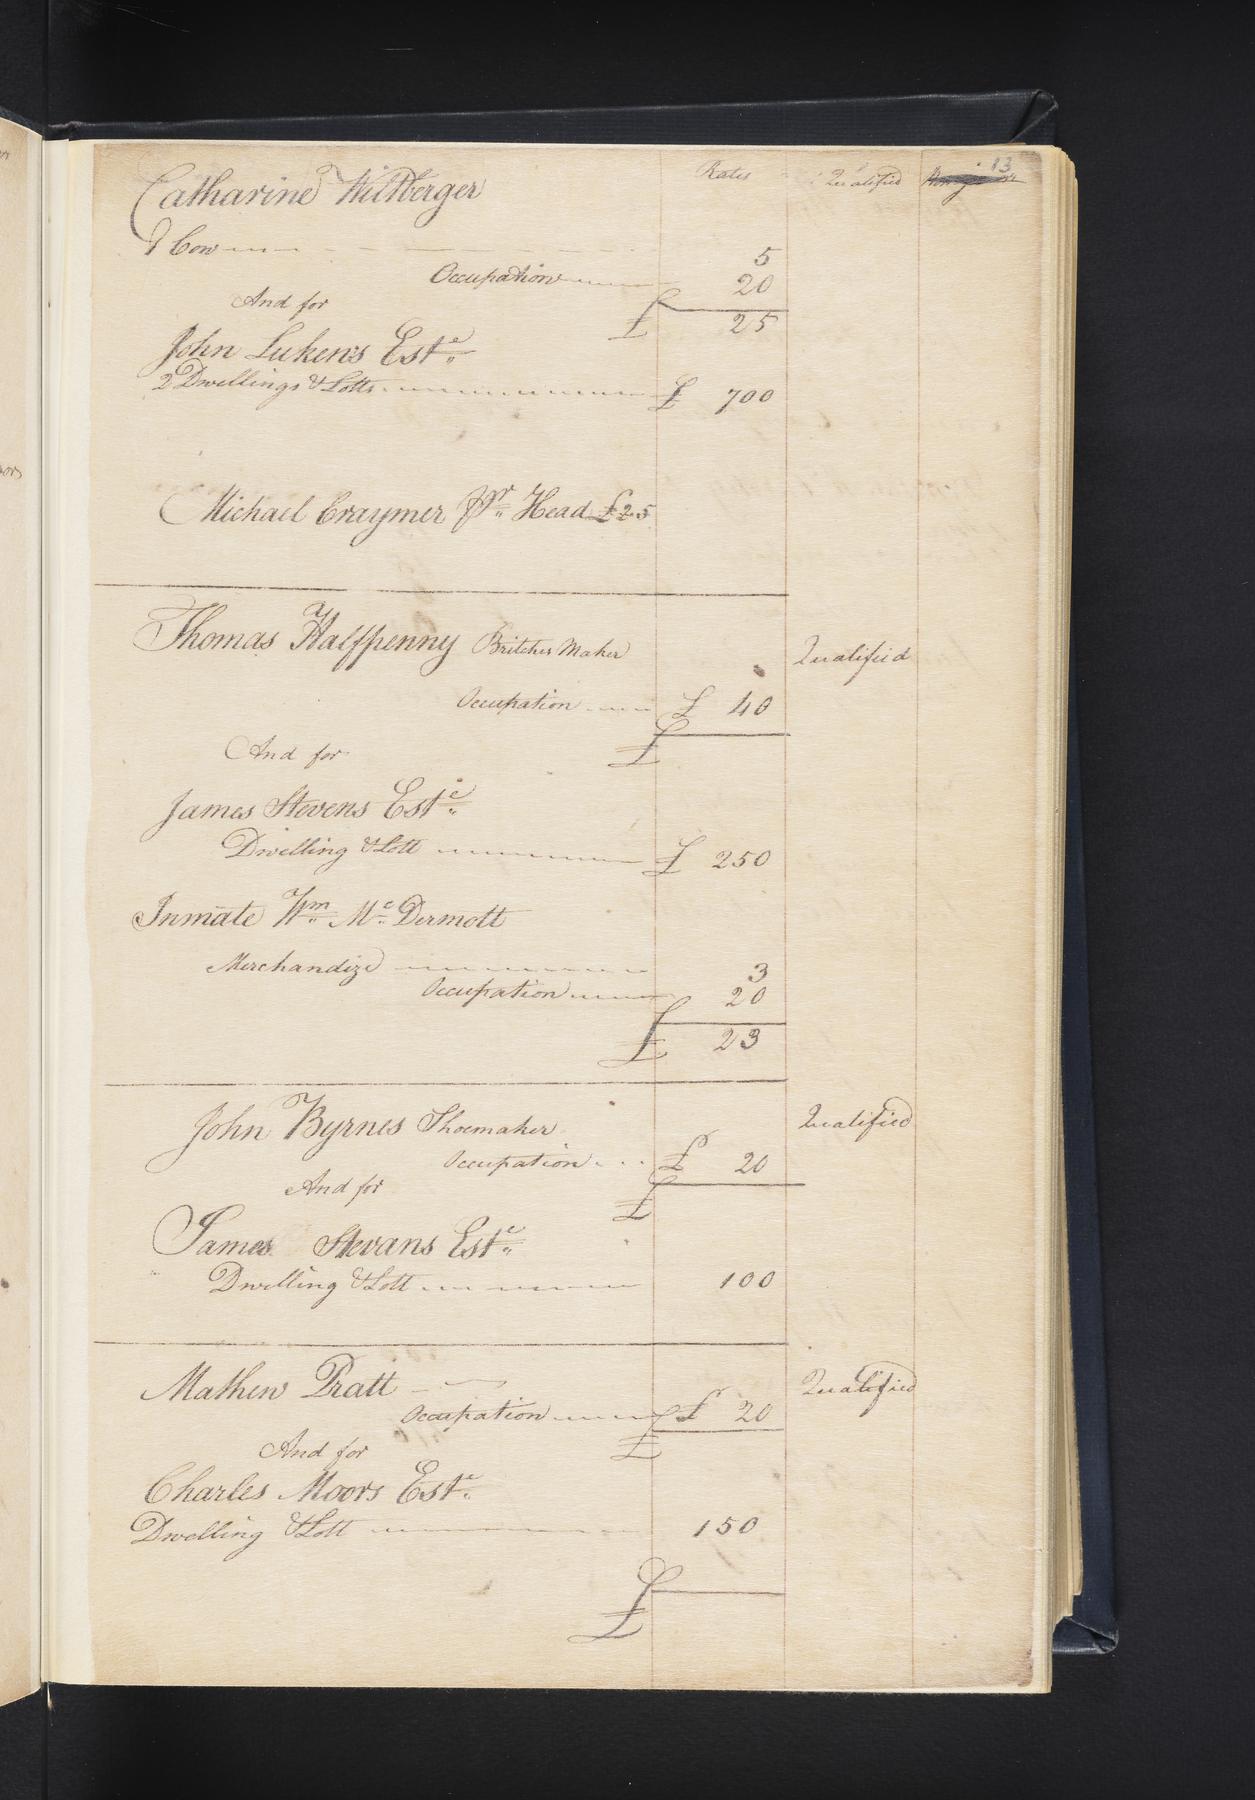 13
Rates Qualified
Catharine Wiltberger
1 Cow 5
Occupation 20
And for £ 25
John Lukens Est.e
2 Dwellings & Lotts £ 700
Michael Craymer pr Head £25
Thomas Halfpenny Britches Maker Qualified
Occupation £ 40
And for £
James Stevens Est.e
Dwelling & Lott £ 250
Inmate Wm Mc Dermott
Merchandize 3
Occupation 20
£ 23
John Byrnes Shoemaker Qualified
Occupation £ 20
And for £
James Stevans Est.e
Dwelling & Lott 100
Mathew Pratt Qualified
Occupation £ 20
And for £
Charles Moors Est.e
Dwelling & Lott 150
£